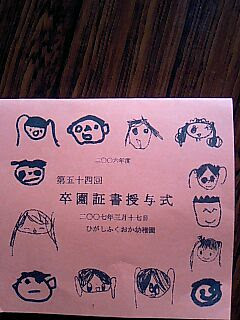 二〇〇六年度
第五十四回
卒園証書授与式
二〇〇七年三月十七日
ひがしふくおか幼稚園